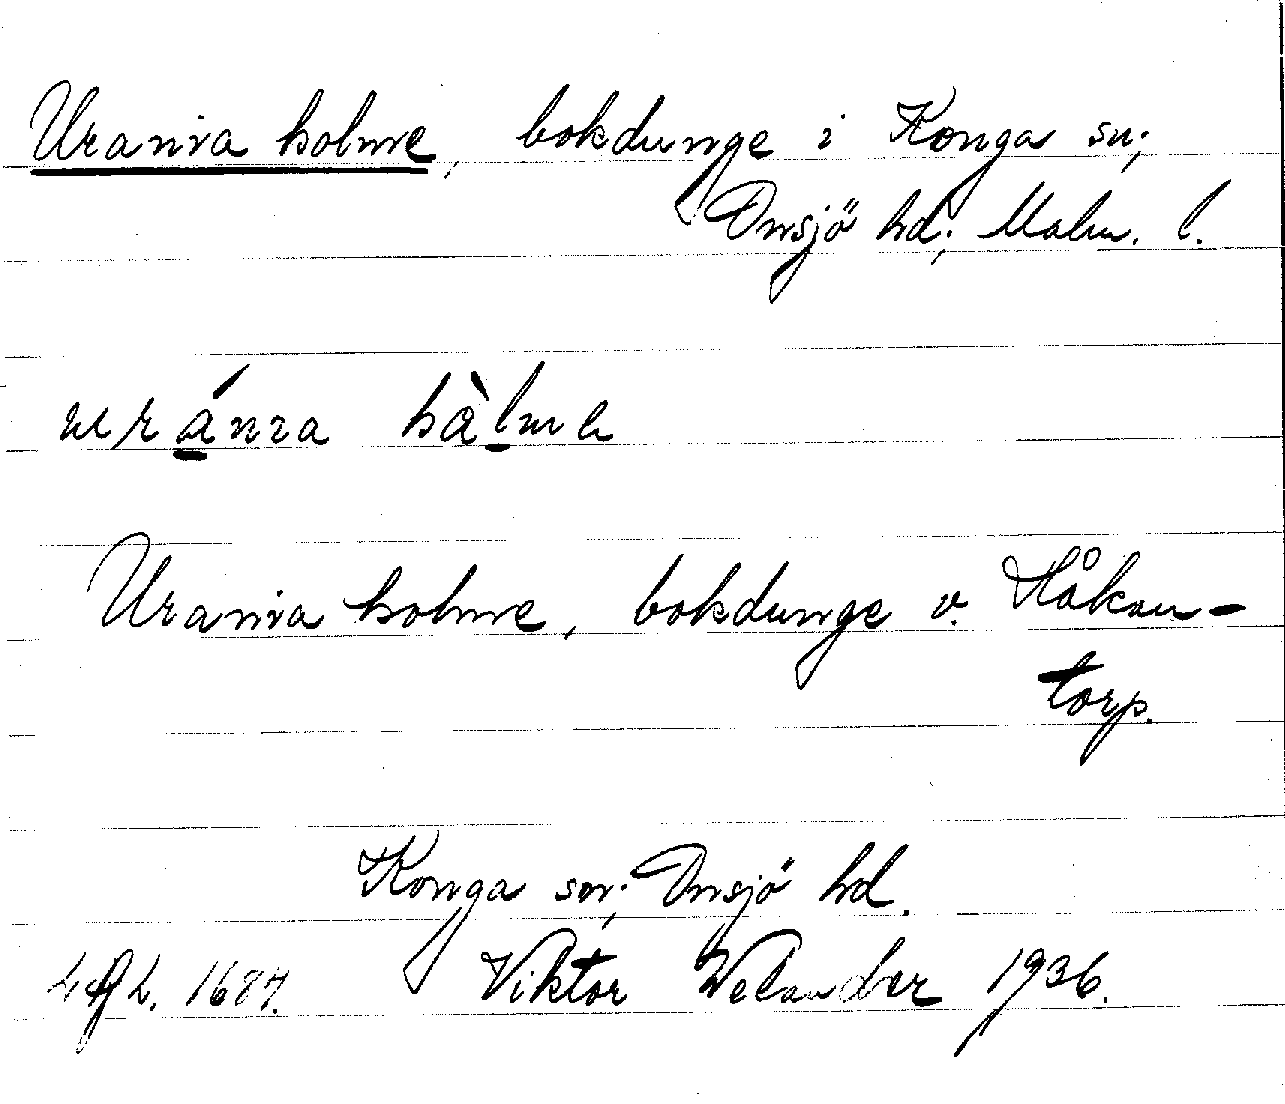 Urania holme, bokdunge i Konga sn;
Onsjö hd; Malm. l.
uránia hàlme
Urania holme, bokdunge v. Håkan-
torp.
Konga sn; Onsjö hd.
1687. Viktor Welander 1936.